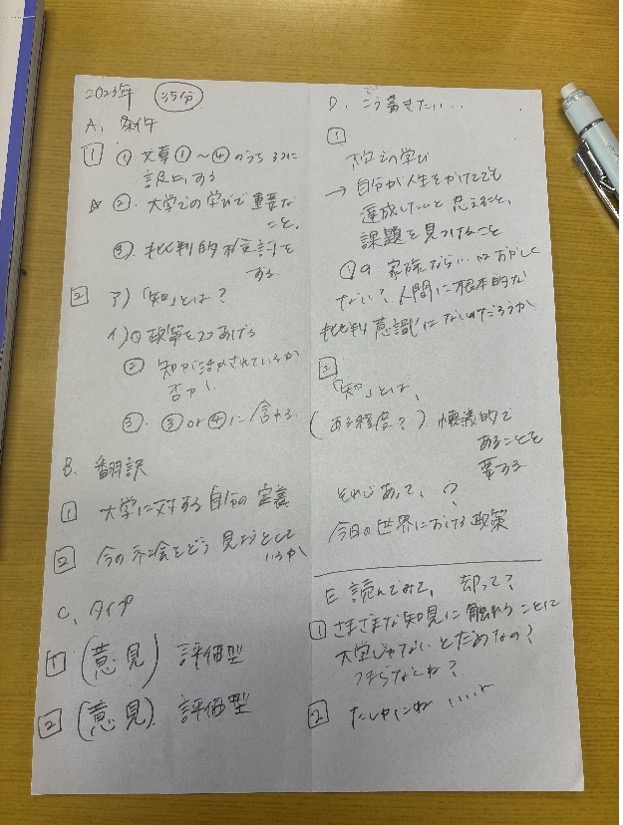 2023年 35分
A. 条件
1 ① 文章①〜④のうち3つに
言及する
☆ ②. 大学での学びで重要な
こと。
③. 批判的検討を
する
2 ア)「知」とは?
イ)① 政策を2つあげる
② 知が活かされているか
否か
③. ③or④に含める
B. 翻訳
1 大学に対する自分の定義
2 今の社会をどう見ようとして
いるか
C. タイプ
1 (意見) 評価型
2 (意見) 評価型
D. こう書きたい...
1
の学び
→ 自分が人生をかけてでも
達成したいと思えること、
課題を見つけること
の 家族なら
ない? 人間に根本的な
批判意識にないのだろうか
2
「知」とは、
(ある程度?) 懐疑的で
あることを
要する
それじゃあって、?
今日の世界における政策
E 読んでみて、却って?
1 さまざまな知見に触れることって
大学じゃないとだめなの?
つまらなくね?
2 たしかにね